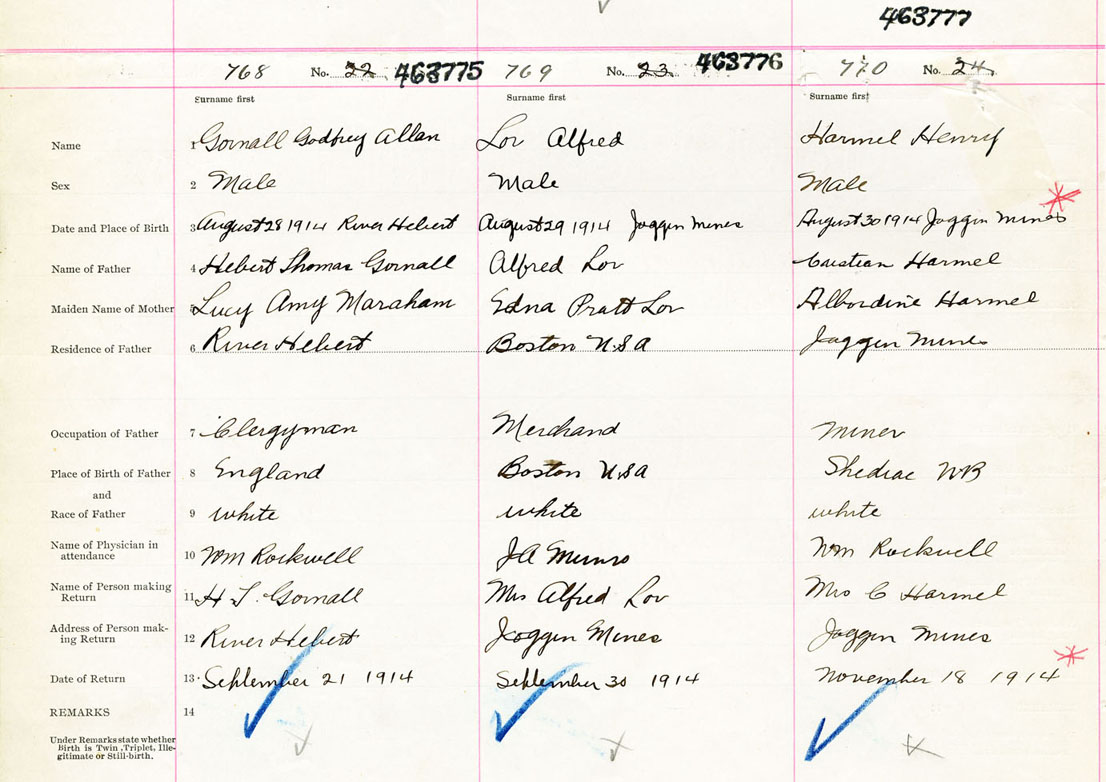 463777
768 No. 22 463775 769 No. 23 463776 770 No. 24
Surname first Surname first Surname first
Name 1 Gornall Godfrey Allan Lov Alfred Harmel Henry
Sex 2 Male Male Male
Date and Place of Birth 3 August 28 1914 River Hebert August 29 1914 Joggin Mines August 30 1914 Joggin Mines
Name of Father 4 Hebert Thomas Gornall Alfred Lov Harmel
Maiden Name of Mother 5 Lucy Amy Maraham Edna Pratt Lov Albordine Harmel
Residence of Father 6 River Hebert Boston U.S A Joggin Mines
Occupation of Father 7 Clergyman Merchand Miner
Place of Birth of Father 8 England Boston U.S A Shediac NB
and
Race of Father 9 white white white
Name of Physician in
attendance 10 Wm Rockwell J A Munro Wm Rockwell
Name of Person making
Return 11 H T. Gornall Mrs Alfred Lov Mrs C Harmel
Address of Person mak-
ing Return 12 River Hebert Joggin Mines Joggin Mines
Date of Return 13 September 21 1914 September 30 1914 November 18 1914
REMARKS 14
Under Remarks state whether
Birth is Twin, Triplet, Ille-
gitimate or Still-birth.